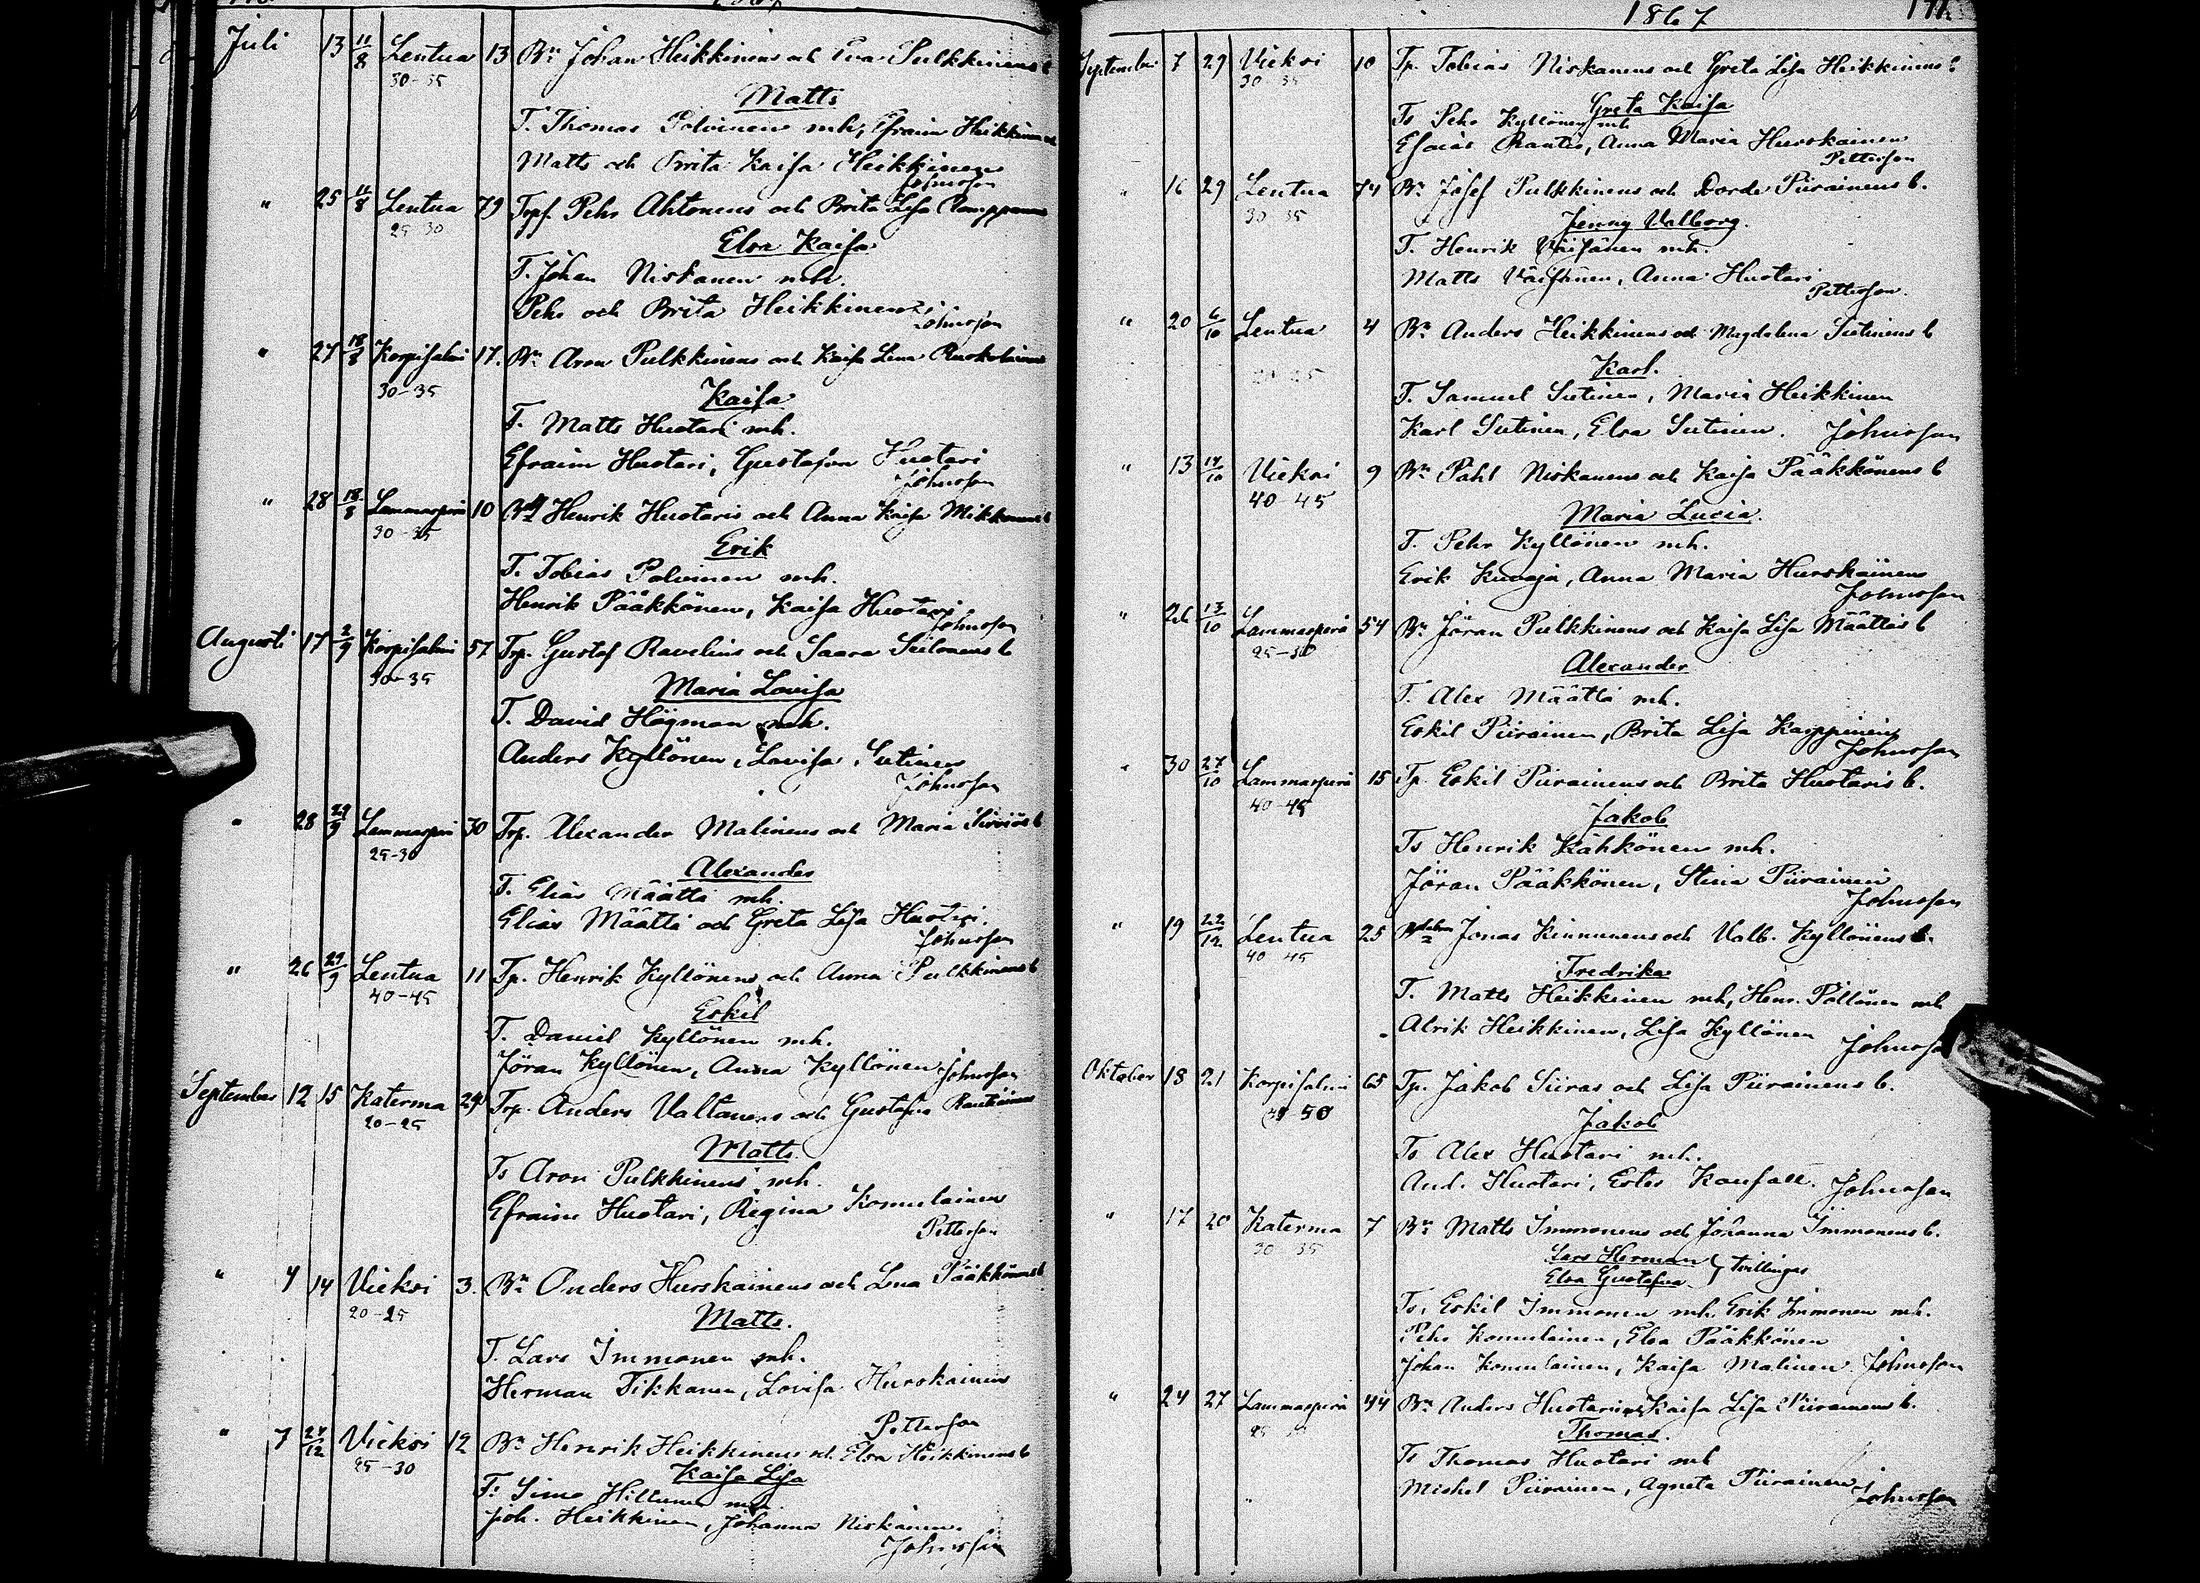 Juli 13 11/8 Lentua 13 Bn Johan Heikkinens och Eva Pulkkinens b
30-35
Matts
T. Thomas Polvinen mh, Efraim Heikkinen
Matts och Brita Kaisa Heikkinen
Johnsson
" 25 11/8 Lentua 79 Pehr Ahtonens och Brita Lisa
25 30
Elsa Kaisa
T. Johan Niskanen mh.
Pehr och Brita Heikkinen
Johnsson
" 27 18/8 Korpisalmi 17. Bn Aron Pulkkinens och Kaisa Lena
30-35
Kaisa
T. Matts Huotari mh.
Efraim Huotari, Gustafva Huotari
Johnsson
" 28 18/8 Lammasperä 10 Henrik Huotaris och Anna Kaisa Mikkonens b
30-35
Erik
T. Tobias Polvinen mh.
Henrik Pääkkönen, Kaisa Huotari
Johnsson
Augusti 17 2/9 Korpisalmi 57 Trp. Gustaf Ravelins och Saara Siilonens b
30-35
Maria Lovisa
T. David Högman mh.
Anders Kyllönen, Lovisa Sutinen
Johnsson
" 28 29/9 Lammasperä 30 Trp. Alexander Malinens och Maria Sirviös b
25-30
Alexander
T. Elias Määttä mh.
Elias Määttä och Greta Lisa Huotari.
Johnsson
" 26 29/9 Lentua 11 Tp. Henrik Kyllönens och Anna Pulkkinens b
40-45
Eskil
T. Daniel Kyllönen mh.
Jöran Kyllönen, Anna Kyllönen Johnsson
September 12 15 Katerma 24 Trp. Anders Valtanens och Gustafva Rautiainens
20-25
Matts
Ts Aron Pulkkinens mh.
Efraim Huotari, Regina Komulainen
Pettersson
" 4 14 Vieksi 3. Bn Anders Hurskainens och Lena Pääkkönens b
20-25
Matts.
T. Lars Immonen mh.
Herman Tikkanen, Lovisa Hurskainen
Pettersson
" 7 27/12 Vieksi 12 Bn Henrik Heikkinens och Elsa Heikkinens b
25-30
Kaisa Lisa
T. Simo Hiltunen mh.
Joh. Heikkinen, Johanna Niskanen.
Johnsson
1867 171.
September 7 29 Vieksi 10 Tp. Tobias Niskanens och Greta Lisa Heikkinens b
30 35
Greta Kaisa
Ts Pehr Kyllönen mh
Esaias Anna Maria Hurskainen
Pettersson
" 16 29 Lentua 74 Bn Josef Pulkkinens och Dorde Piirainens b.
30 35
Jenny Valborg.
T. Henrik Väisänen mh.
Matts Väisänen, Anna Huotari
Pettersson.
" 20 6/10 Lentua 4 Bn Anders Heikkinens och Magdalena Sutinens b
Karl.
T. Samuel Sutinen, Maria Heikkinen
Karl Sutinen, Elsa Sutinen. Johnsson
" 13 14/10 Vieksi 9 Bn Pahl Niskanens och Kaisa Pääkkönens b
40 45
Maria Lucia.
T. Pehr Kyllönen mh.
Erik Kuvaja, Anna Maria Hurskainen
Johnsson
" 26 13/10 Lammasperä 54 Bn Jöran Pulkkinens och Kaisa Lisa Määttäs b
25-30
Alexander
T. Alex Määttä mh.
Eskil Piirainen, Brita Lisa Karppinen
Johnsson
" 30 27/10 Lammasperä 15 Tp. Eskil Piirainens och Brita Huotaris b.
40-45
Jakob
Ts Henrik Kähkönen mh.
Jöran Pääkkönen, Stina Piirainen
Johnsson
" 19 22/12 Lentua 25 Jonas Kinnunens och Valb. Kyllönens b.
40 45
Fredrika
T. Matts Heikkinen mh, Henr. Pöllänen mh
Alrik Heikkinen, Lisa Kyllönen
Johnsson
Oktober 18 21 Korpisalmi 65 Tp. Jakob Siiras och Lisa Piirainens b.
50
Jakob
Ts Alex Huotari mh.
And. Huotari, Ester Johnsson
" 17 20 Katerma 7 Bn Matts Immonens och Johanna Immonens b.
30 35
Lars Herman } tvillingar
Elsa Gustafva
Ts. Eskil Immonen mh. Erik Immonen mh.
Pehr Komulainen, Elsa Pääkkönen
Johan Komulainen, Kaisa Malinen Johnsson
" 24 27 Lammasperä 44 Bn Anders Huotaris och Kaisa Lisa Piirainens b.
Thomas.
Ts Thomas Huotari mh
Mickel Piirainen, Agneta Piirainen
Johnsson